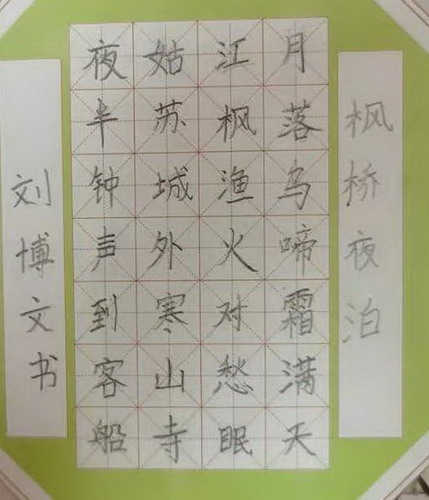 枫桥夜泊
月落乌啼霜满天
江枫渔火对愁眠
姑苏城外寒山寺
夜半钟声到客船
刘博文书